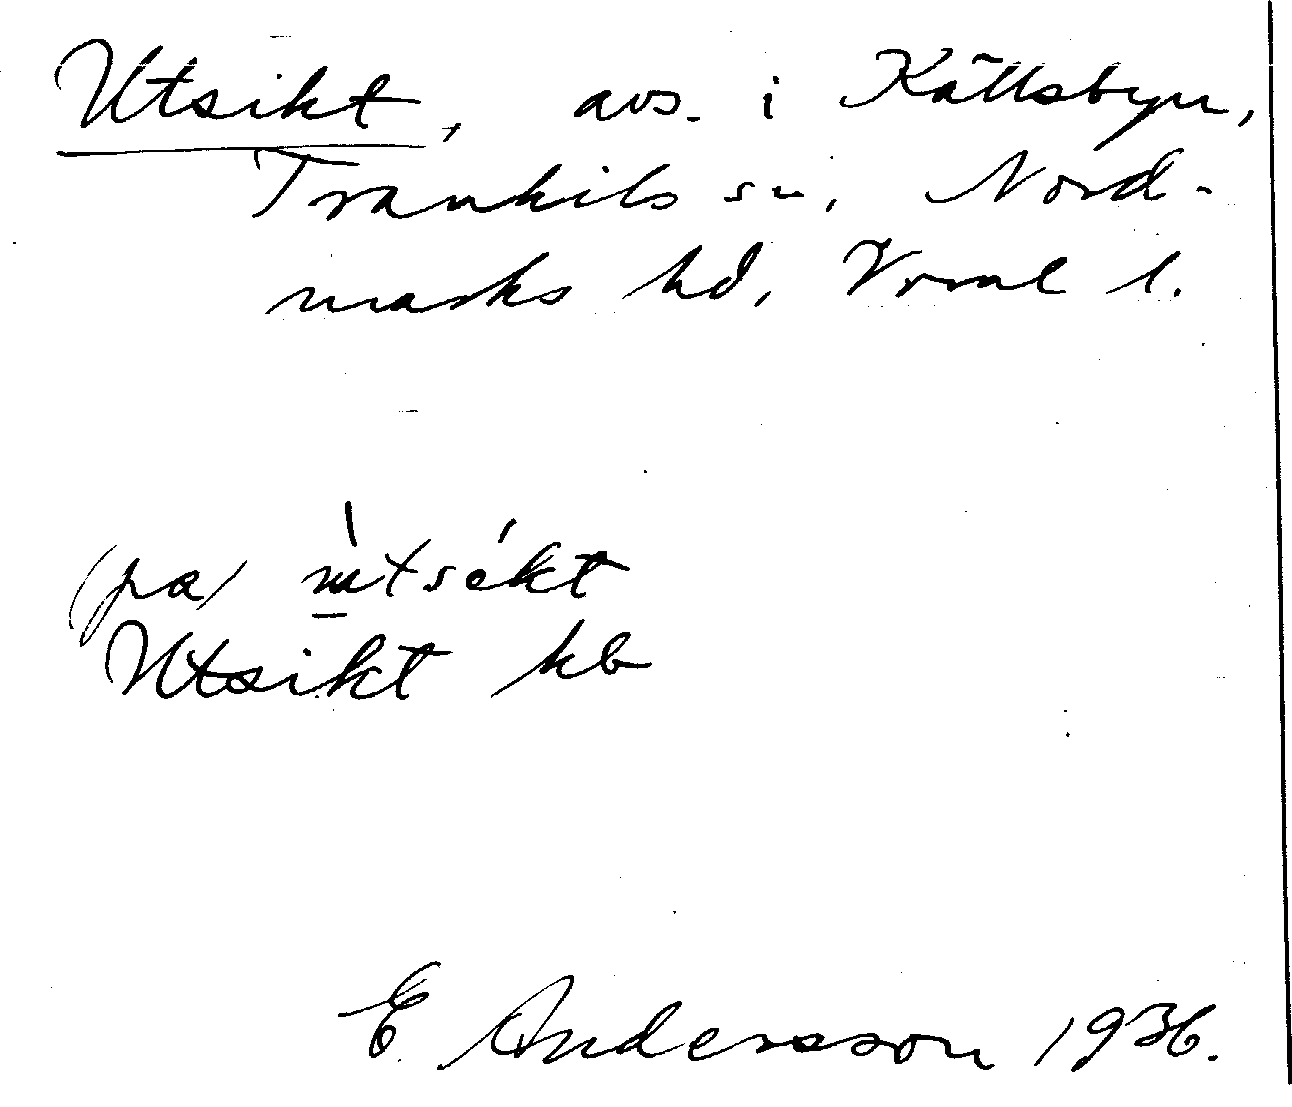 Utsikt, avs. i Källsbyn,
Trankils sn, Nord-
marks hd, Vrml l.
(pa)
Utsikt kb
E Andersson 1936.